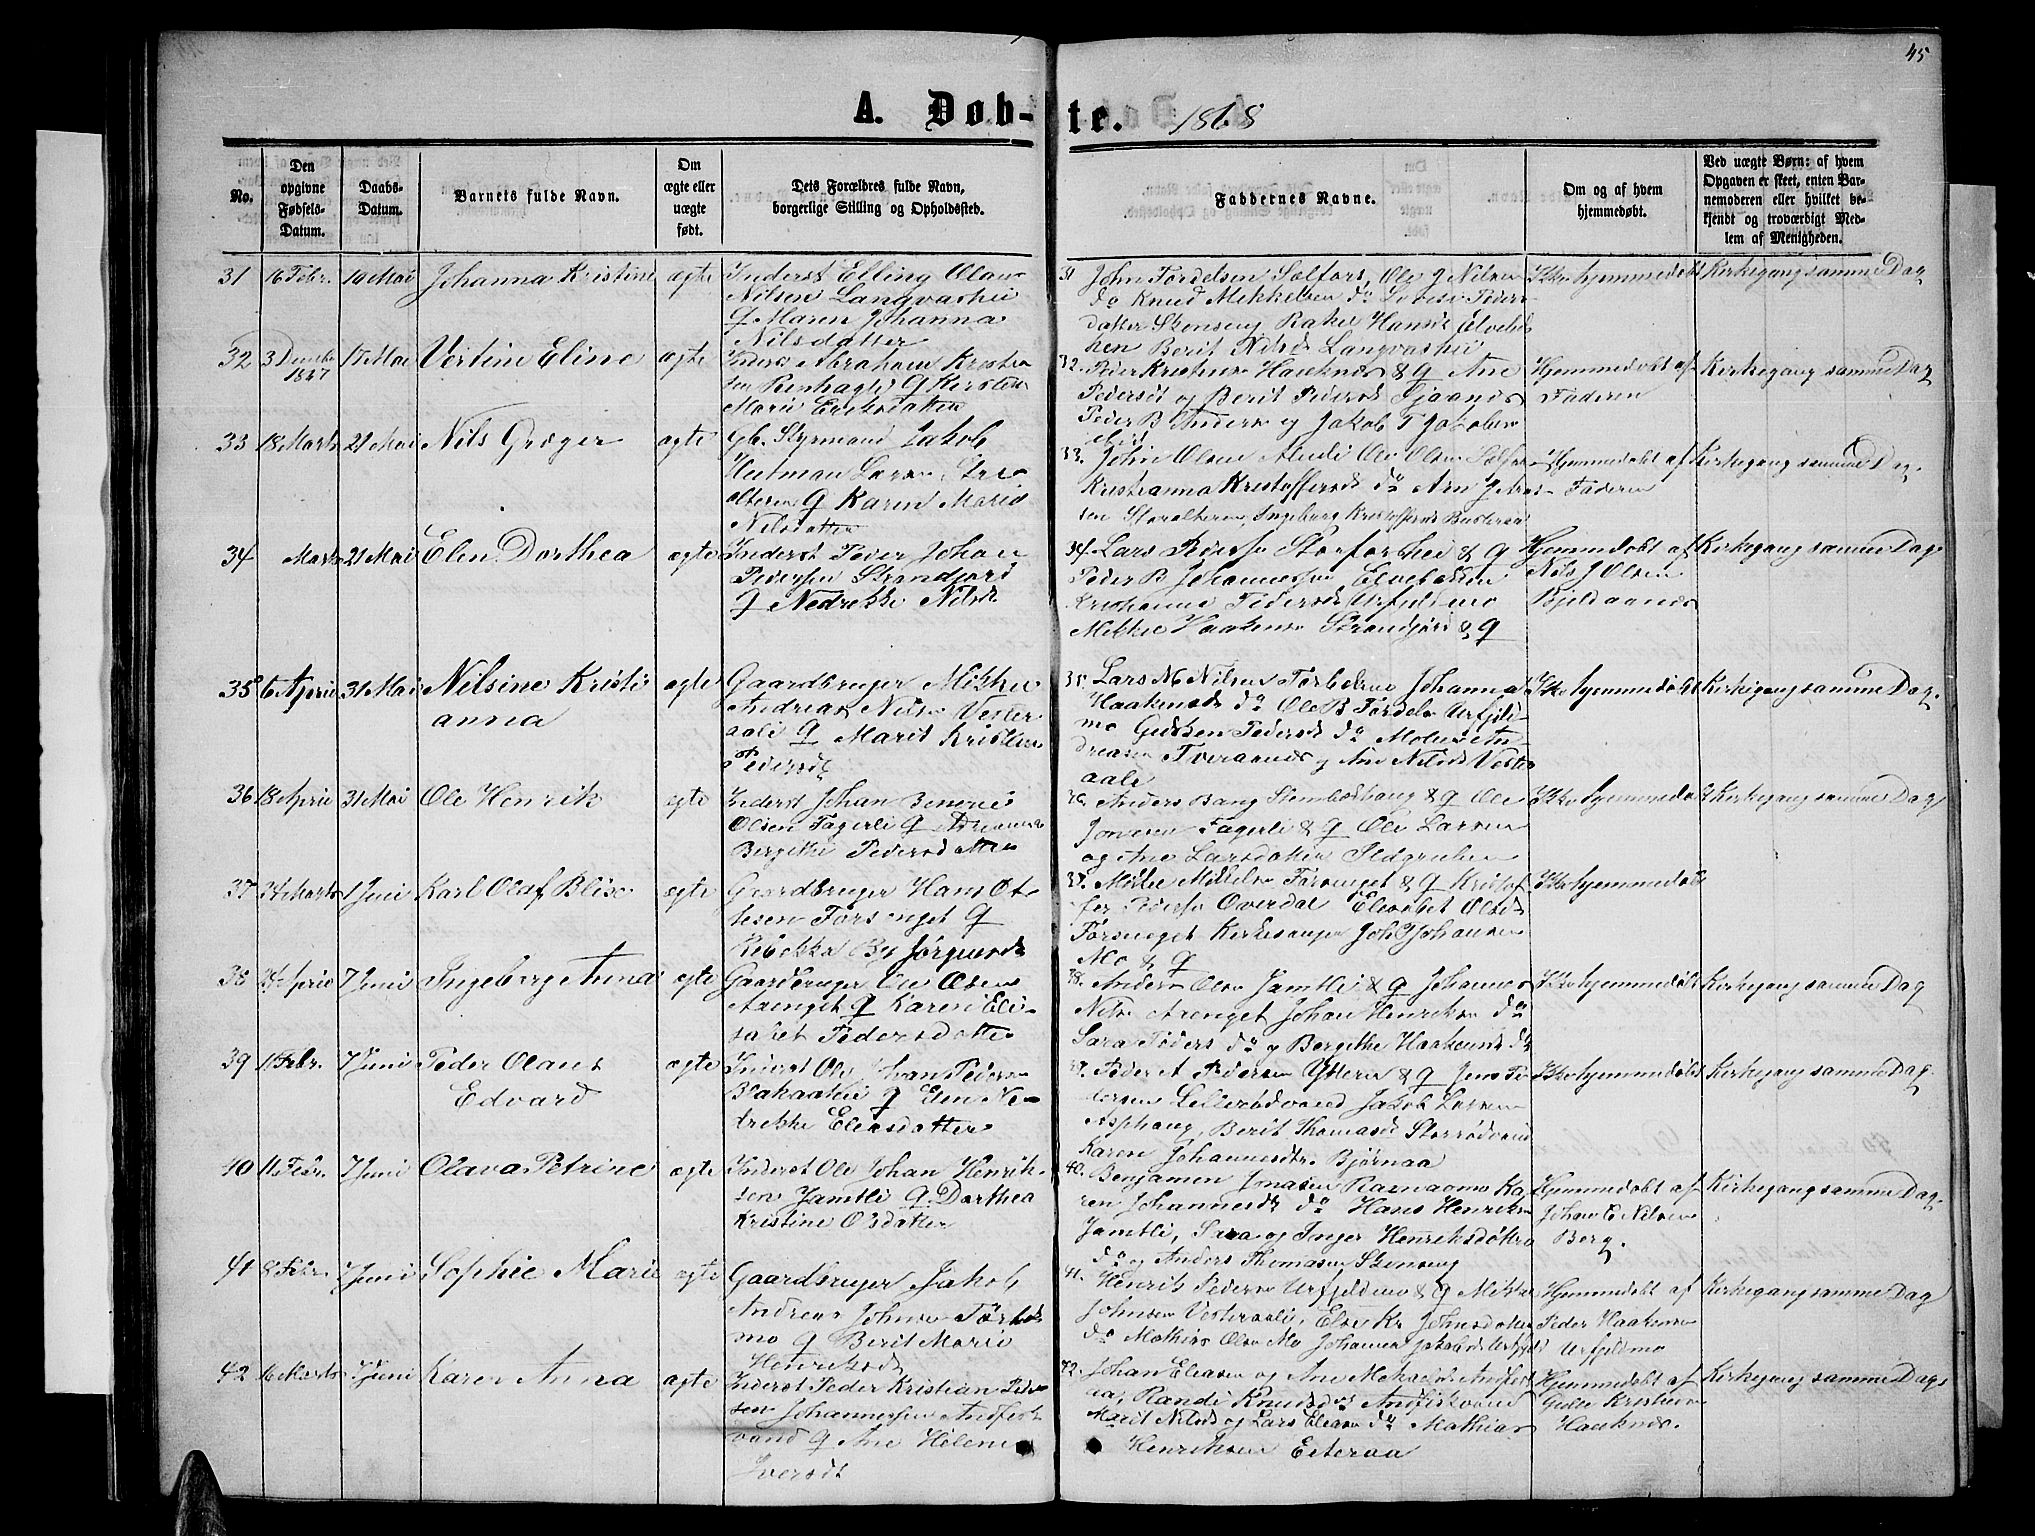 45
A. Døb-te. 1868
No.
Den opgivne Fødsels-Datum.
Daabs-Datum.
Barnets fulde Navn.
Om ægte eller uægte født.
Dets Forældres fulde Navn, borgerlige Stilling og Opholdssted.
Faddernes Navne.
Om og af hvem hjemmedøbt.
Ved uægte Børn: af hvem Opgaven er skeet, enten Barnemoderen eller hvilket bekjendt og troværdigt Medlem af Menigheden.
31 16 Febr. 10 Mai Johanna Kristine ægte Inderst Elling Olau
Nilsen Langvashei
G Maren Johanna
Nilsdatter
31 John Tordelsen Selfors, Ole J Nilsen
do Knud Mikkelsen do Lovise Peders
datter Stenseng
hen Berit Nilsd Langvashei
Ikke hjemmedøbt Kirkegang samme Dag
32 3 Decembr 1867 17 Mai Vertine Eline ægte Inderst Abraham Kristen
sen G Kirsten
Marie Eriksdatter
32. Peder Kristensen Hauknes & G Ane
Pedersdt og Berit Pedersd
Peder B Anders og Jakob T Jakobsen
Hjemmedøbt af Faderen Kirkegang samme Dag
33 18 Marts 21 Mai Nils Grøger ægte Gb. Styrmand Jakob
Heitman Larsen Stor
alteren G Karen Marie
Nilsdatter
33. John Olsen Ole Olsen Selfors
Kristianna Kristoffersd do
Storalteren, Ingeborg Kristoffersd
Hjemmedøbt af Faderen Kirkegang samme Dag.
34 Marts 21 Mai Elen Dorthea ægte Inderst Peder Johan
Pedersen Strandjord
G Nedrekke Nilsd
34. Lars Pedersen Storforshei & G
Peder B Johannessen Elvebakken
Kristianne Pedersd Urfjeldmo
Mikkel Haakensen Strandjord & G
Hjemmedøbt af
Nils J Olsen
Bjeldaanes
Kirkegang samme Dag
35 6 April 31 Mai Nilsine Kristi
anna ægte Gaardbruger Mikkel
Andreas Nilsen Vester
aali G Marit Kristine
Pedersd
35. Lars N Nilsen Johanna
Haakensd do Ole B Tordels Urfjeld
mo Pedersd do An
dreasen Tveraanes og Ane Nilsd Vester
aale
Ikke hjemmedøbt Kirkegang samme Dag.
36 18 April 31 Mai Ole Henrik ægte Inderst Johan
Olsen Fagerli G
Bergitte Pedersdatter
36. Anders Bang & G Ole
Jonesen Fagerli & G Ole Larsen
og Ane Larsdatter Ildgruben
Ikke hjemmedøbt Kirkegang samme Dag
37 24 Marts 1 Juni Karl Olaf Blix ægte Gaardbruger Hans Ot
tesen Forsenget G
Rebekka By Jørgensd
37. Mikkel Mikkelsen Forsenget & G Kristof
fer Pedersen Overdal Elisabet Olsd
Forsenget Kirkesanger Joh P Johansen
Mo & G
Ikke hjemmedøbt
38 24 April 7 Juni Ingeborg Anna ægte Gaardbruger Ole Olsen
Aaenget G Karen Eli
sabet Pedersdatter
38. Anders Olsen Jamtli & G Johannes
Nilsen Aaenget Johan Henriksen do
Sara Peders do og Bergitte Haakensd do
Ikke hjemmedøbt Kirkegang samme Dag
39 11 Febr. 7 Juni Peder Olaus
Edvard ægte Inderst Ole Johan Pedersen
G Elen Ne
drekke Eliasdatter
39. Peder A Pedersen Ytteren & G Jens Pe
dersen Lillerødvand Jakob Larsen
Asphaug, Berit Thomasd Storrødvand
Karen Johannesdtr Bjørnaa
Ikke hjemmedøbt Kirkegang samme Dag
40 11 Febr. 7 Juni Olava Petrine ægte Inderst Ole Johan Henrik
sen Jamtli G. Dorthea
Kristine Olsdatter
40. Benjamen Jonasen Ranaamo Ka
ren Johannesd do Hans Henriksen
Jamtli, Sara og Inger Henriksdøtre
do og Anders Thomasen Stenseng
Hjemmedøbt af
Johan E Nilsen
Berg.
Kirkegang samme Dag.
41 8 Febr. 7 Juni Sophie Marie ægte Gaardbruger Jakob
Andreas Johnsen
mo G Berit Marie
Henriksd
41. Henrik Pedersen Urfjeldmo & G Mikkel
Johnsen Vesteraali, Else Kr Johnsdatter
do Mathias Olsen Mo Johanna Jakobsd Urfjeld
Hjemmedøbt af
Peder Haakensen
Urfjeldmo
Kirkegang samme Dag
42 16 Marts 7 Juni Karen Anna ægte Inderst Peder Kristian Peder
sen Johannessen Andfisk
vand G Ane Helene
Iversdt
42. Johan Eliasen og Ane
Randi Knudsd Andfiskvand
Marit Nilsd og Lars Eliasen do Mathias
Henriksen Eiteraa
Hjemmedøbt af
Kristian
Hauknes.
Kirkegang samme Dag